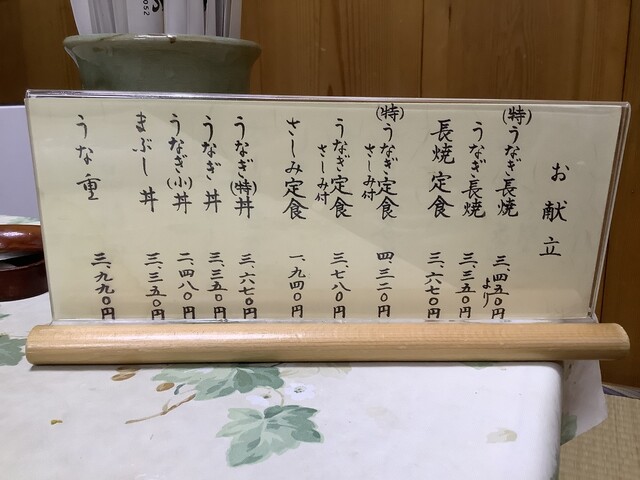 お献立
(特)うなぎ長焼 三、四五〇円より
うなぎ長焼 三、三五〇円
長焼定食 三、六七〇円
(特)うなぎ定食 さしみ付 四、三二〇円
うなぎ定食 さしみ付 三、七八〇円
さしみ定食 一、九四〇円
うなぎ(特)丼 三、六七〇円
うなぎ丼 三、三五〇円
うなぎ(小)丼 二、四八〇円
まぶし丼 三、三五〇円
うな重 三、九九〇円